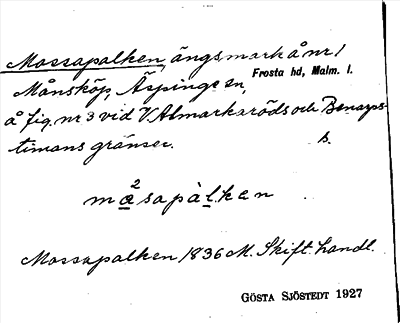 Mossapalken, ängsmark å nr 1
Månsköp, Äspinge sn,
Frosta hd, Malm. l.
å fig. nr 3 vid V. Almarksröds och Benarps-
timans gränser. b.
mæ²sapàlken
Mossapalken 1836 M. Skift. handl.
GÖSTA SJÖSTEDT 1927